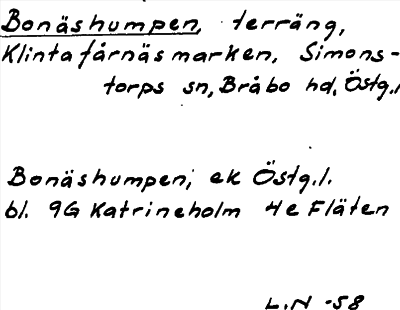 Bonäshumpen, terräng,
Klintafårnäsmarken, Simons-
torps sn, Bråbo hd, Östg.l.
Bonäshumpen; ek Östg.l.
bl. 9G Katrineholm 4e Fläten
L.N -58